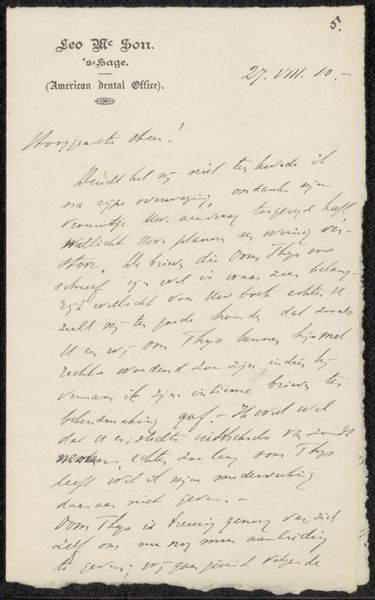 5.
Leo Mc Son.
's-Hage.
(American Dental Office).
27. VIII. 10. -
Hooggeachte Heer!
Duidt het mij niet ten kwade ik
na rijpe overweging, ondanks mijn
Uwe aanvraag toegezegd heb
Wellicht Uwe plannen een weinig ver-
stoor. De brieven die Oom Thijs ons
schreef zijn wel is waar zeer belang-
rijk wellicht voor Uw boek echter U
zult mij ten goede houden dat zooals
U en wij Oom Thijs kennen hij met
recht woedend zou zijn, indien hij
vernam ik zijn intieme brieven ter
gaf. - Ik wel
dat U er slechts uittreksels van zoudt
echter zoo lang Oom Thijs
leeft wil ik mijn medewerking
daaraan niet geven. -
Oom Thijs is genoeg van zich
zelf om nu nog meer aanleiding
te geven; wij gaan juist volgende